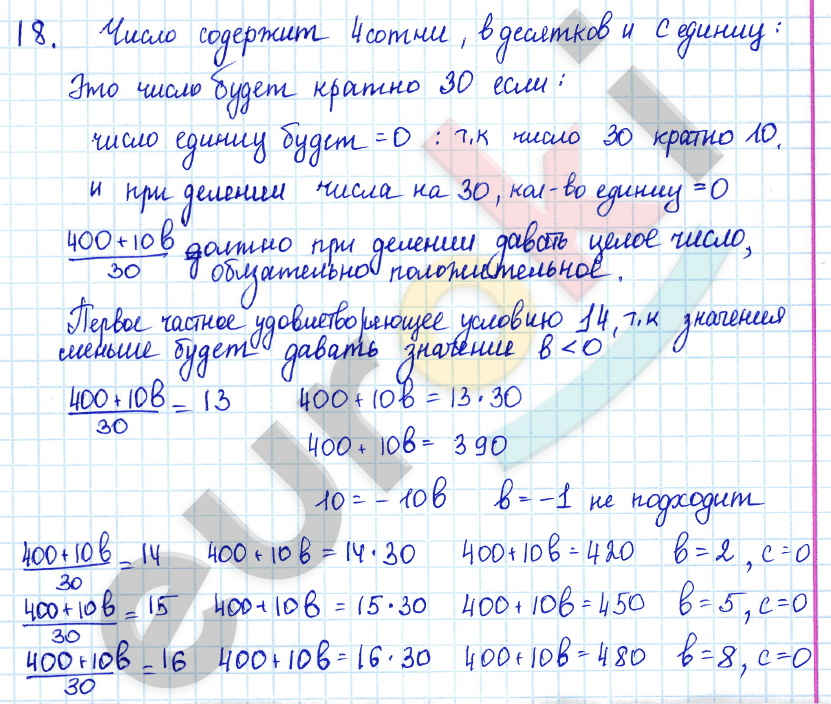 18. Число содержит 4 сотни, в десятков и с единиц:
Это число будет кратно 30 если:
число единиц будет = 0 : т.к число 30 кратно 10.
и при делении числа на 30, кол-во единиц = 0
(400 + 10в)/30 должно при делении давать целое число,
обязательно положительное.
Первое частное удовлетворяющее условию 14, т.к значения
меньше будет давать значение в < 0
(400 + 10в)/30 = 13 400 + 10в = 13 · 30
400 + 10в = 390
10 = - 10в в = -1 не подходит
(400+10в)/30 = 14 400 + 10в = 14 · 30 400 + 10в = 420 в = 2, с = 0
(400+10в)/30 = 15 400 + 10в = 15 · 30 400 + 10в = 450 в = 5, с = 0
(400+10в)/30 = 16 400 + 10в = 16 · 30 400 + 10в = 480 в = 8, с = 0
euroki